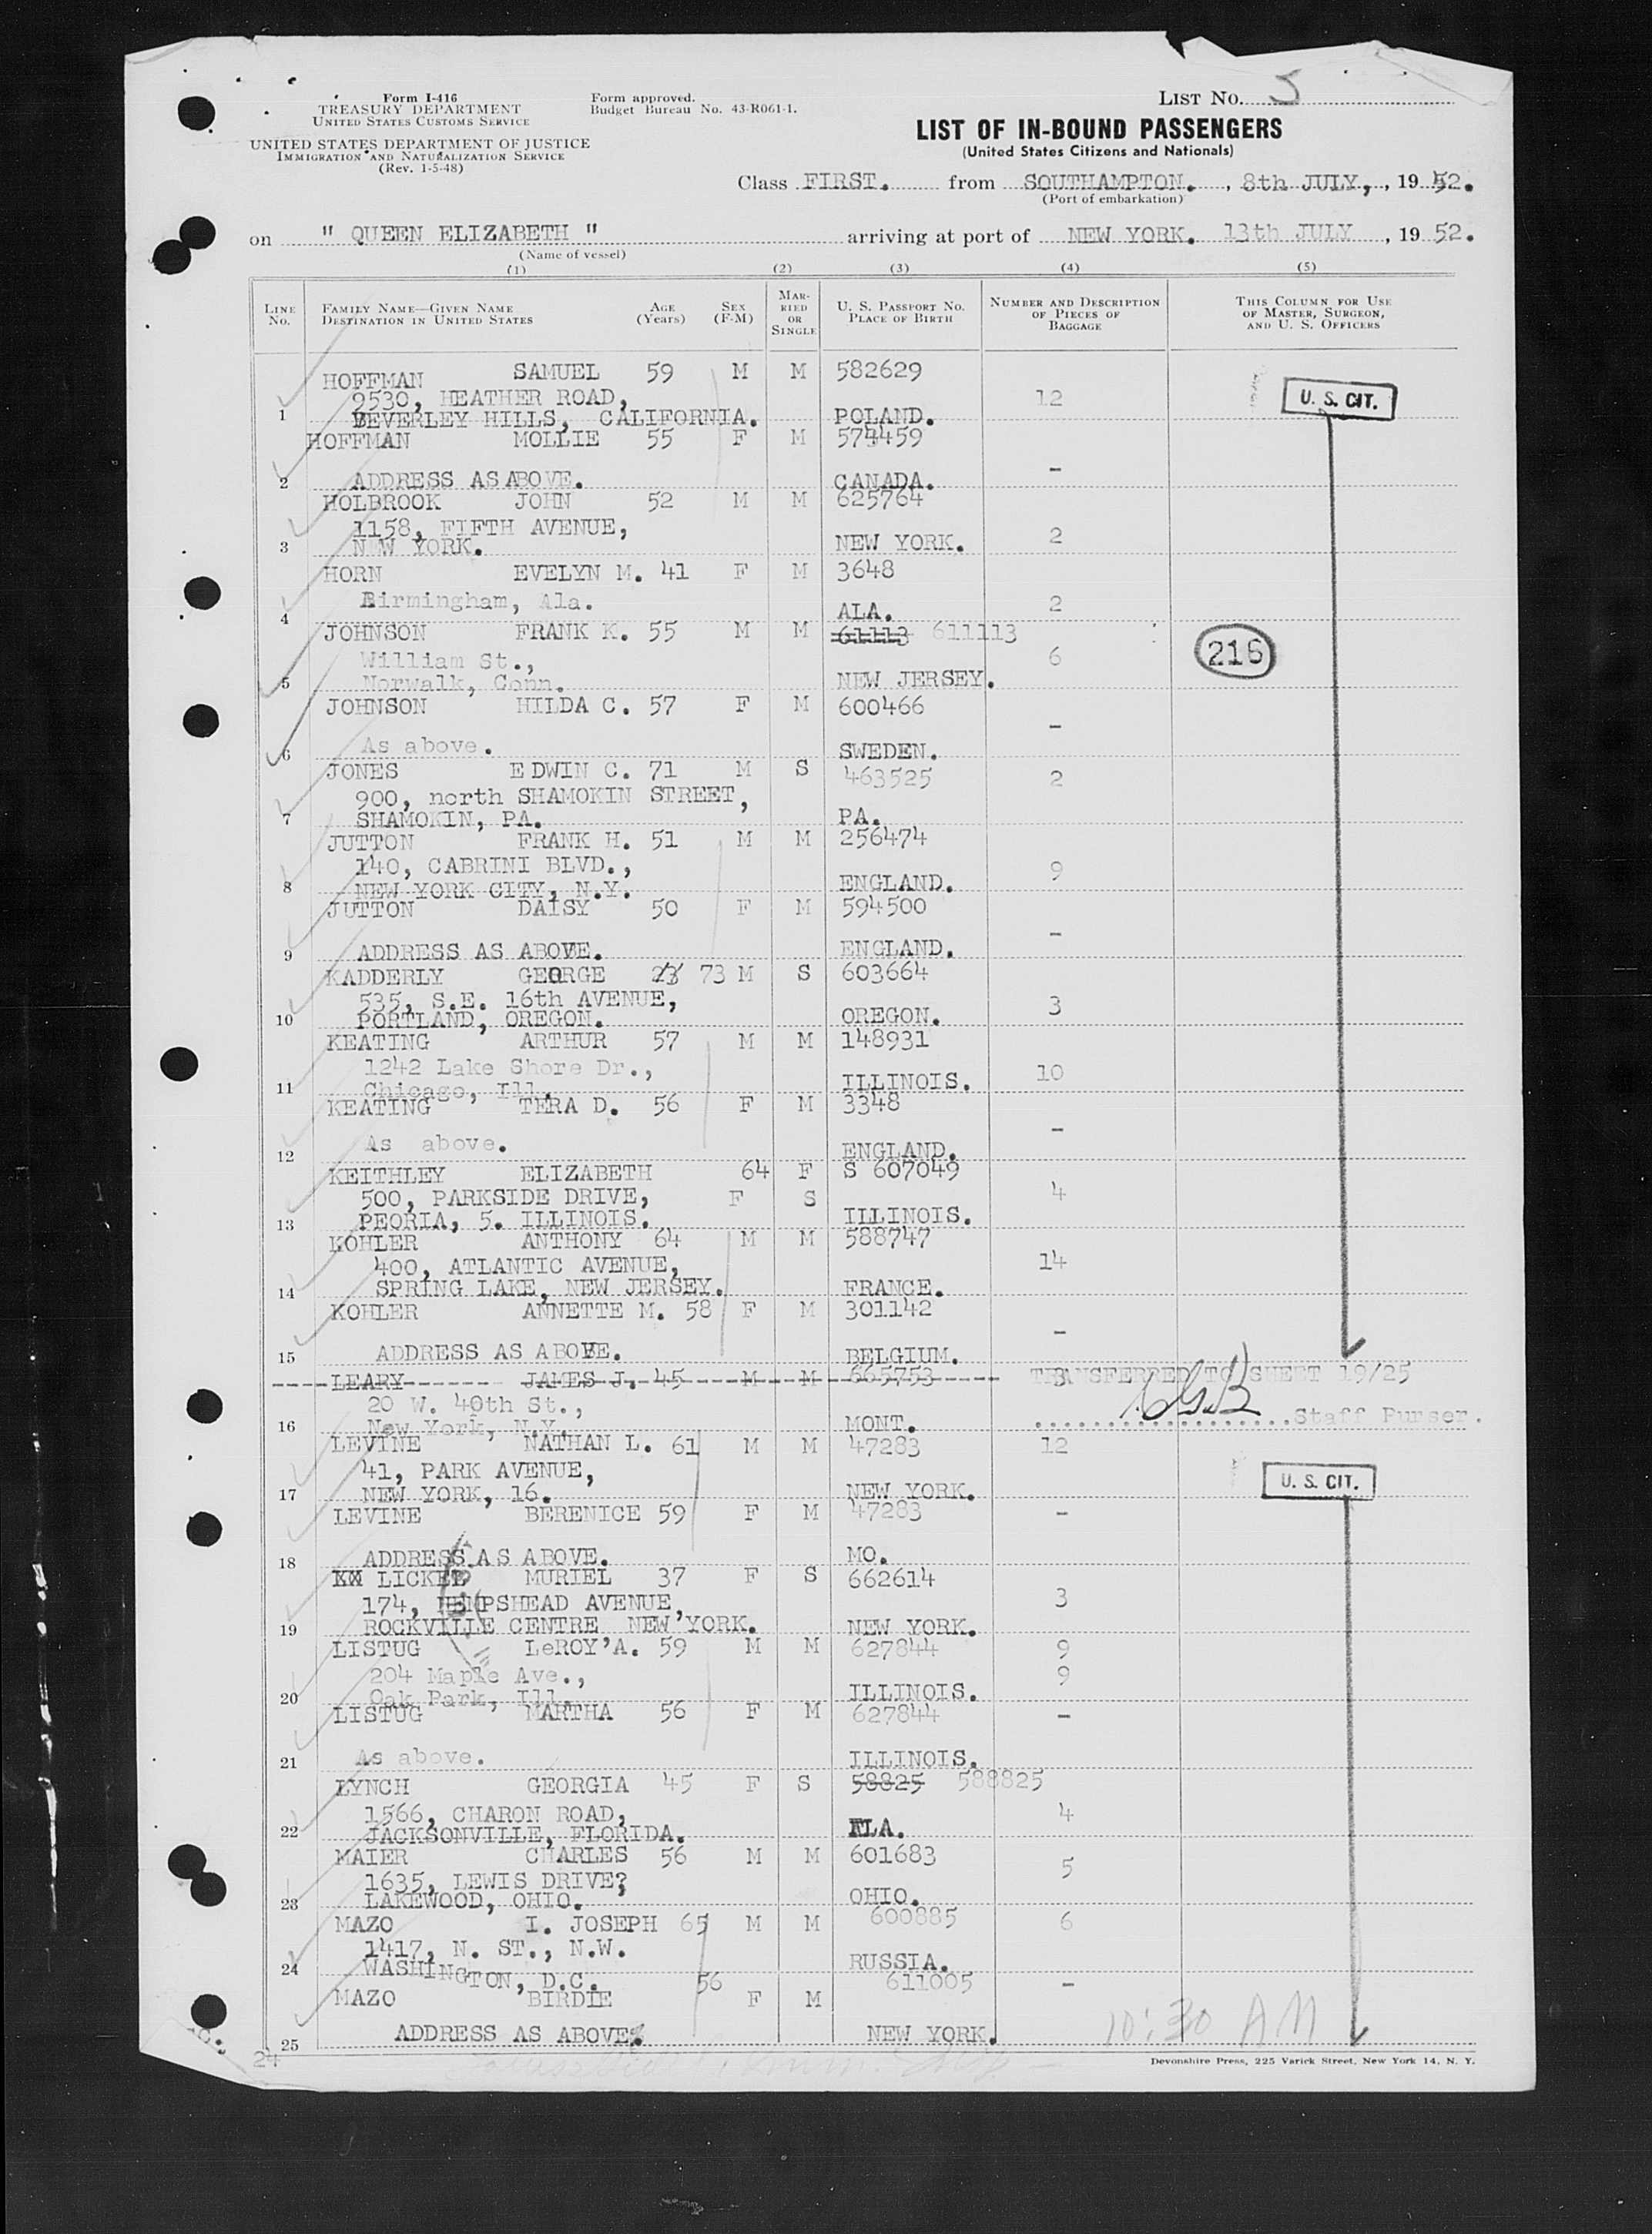 Form I-416
TREASURY DEPARTMENT
UNITED STATES CUSTOMS SERVICE
UNITED STATES DEPARTMENT OF JUSTICE
IMMIGRATION AND NATURALIZATION SERVICE
(Rev. 1-5-48)
Form approved.
Budget Bureau No. 43-R061-1.
LIST NO. 5
LIST OF IN-BOUND PASSENGERS
(United States Citizens and Nationals)
Class FIRST. from SOUTHAMPTON. , 8th JULY, , 19 52.
(Port of embarkation)
on " QUEEN ELIZABETH " arriving at port of NEW YORK. 13th JULY , 19 52.
(Name of vessel)
(1) (2) (3) (4) (5)
LINE NO. FAMILY NAME—GIVEN NAME DESTINATION IN UNITED STATES AGE (Years) SEX (F-M) MARRIED OR SINGLE U. S. PASSPORT NO. PLACE OF BIRTH NUMBER AND DESCRIPTION OF PIECES OF BAGGAGE THIS COLUMN FOR USE OF MASTER, SURGEON, AND U. S. OFFICERS
HOFFMAN SAMUEL 59 M M 582629
9530, HEATHER ROAD, 12 U. S. CIT.
1 BEVERLEY HILLS, CALIFORNIA. POLAND.
HOFFMAN MOLLIE 55 F M 574459
2 ADDRESS AS ABOVE. CANADA. -
HOLBROOK JOHN 52 M M 625764
1158, FIFTH AVENUE, 2
3 NEW YORK. NEW YORK.
HORN EVELYN M. 41 F M 3648
Birmingham, Ala. 2
4 ALA.
JOHNSON FRANK K. 55 M M 61113 611113
William St., 6 216
5 Norwalk, Conn. NEW JERSEY.
JOHNSON HILDA C. 57 F M 600466
6 As above. SWEDEN. -
JONES EDWIN C. 71 M S 463525 2
900, north SHAMOKIN STREET,
7 SHAMOKIN, PA. PA.
JUTTON FRANK H. 51 M M 256474
140, CABRINI BLVD., 9
8 NEW YORK CITY, N.Y. ENGLAND.
JUTTON DAISY 50 F M 594500
9 ADDRESS AS ABOVE. ENGLAND. -
KADDERLY GEORGE 23 73 M S 603664
535, S.E. 16th AVENUE, 3
10 PORTLAND, OREGON. OREGON.
KEATING ARTHUR 57 M M 148931
1242 Lake Shore Dr., 10
11 Chicago, Ill. ILLINOIS.
KEATING TERA D. 56 F M 3348
12 As above. ENGLAND. -
KEITHLEY ELIZABETH 64 F S 607049
500, PARKSIDE DRIVE, F S 4
13 PEORIA, 5. ILLINOIS. ILLINOIS.
KOHLER ANTHONY 64 M M 588747
400, ATLANTIC AVENUE, 14
14 SPRING LAKE, NEW JERSEY. FRANCE.
KOHLER ANNETTE M. 58 F M 301142
15 ADDRESS AS ABOVE. BELGIUM. -
LEARY JAMES J. 45 M M 665753 3 TRANSFERRED TO SHEET 19/25
20 W. 40th St.,
16 New York, N.Y. MONT. Staff Purser.
LEVINE NATHAN L. 61 M M 47283 12
41, PARK AVENUE, U. S. CIT.
17 NEW YORK, 16. NEW YORK.
LEVINE BERENICE 59 F M 47283 -
18 ADDRESS AS ABOVE. MO.
LICKEL MURIEL 37 F S 662614
174, HEMPSHEAD AVENUE, 3
19 ROCKVILLE CENTRE NEW YORK. NEW YORK.
LISTUG LeROY A. 59 M M 627844 9
204 Maple Ave., 9
20 Oak Park, Ill. ILLINOIS.
LISTUG MARTHA 56 F M 627844 -
21 As above. ILLINOIS.
LYNCH GEORGIA 45 F S 58825 588825
1566, CHARON ROAD, 4
22 JACKSONVILLE, FLORIDA. FLA.
MAIER CHARLES 56 M M 601683
1635, LEWIS DRIVE? 5
23 LAKEWOOD, OHIO. OHIO.
MAZO I. JOSEPH 65 M M 600885 6
1417, N. ST., N.W.
24 WASHINGTON, D.C. RUSSIA.
MAZO BIRDIE 56 F M 611005 -
25 ADDRESS AS ABOVE. NEW YORK. 10:30 AM
24
Devonshire Press, 225 Varick Street, New York 14, N. Y.